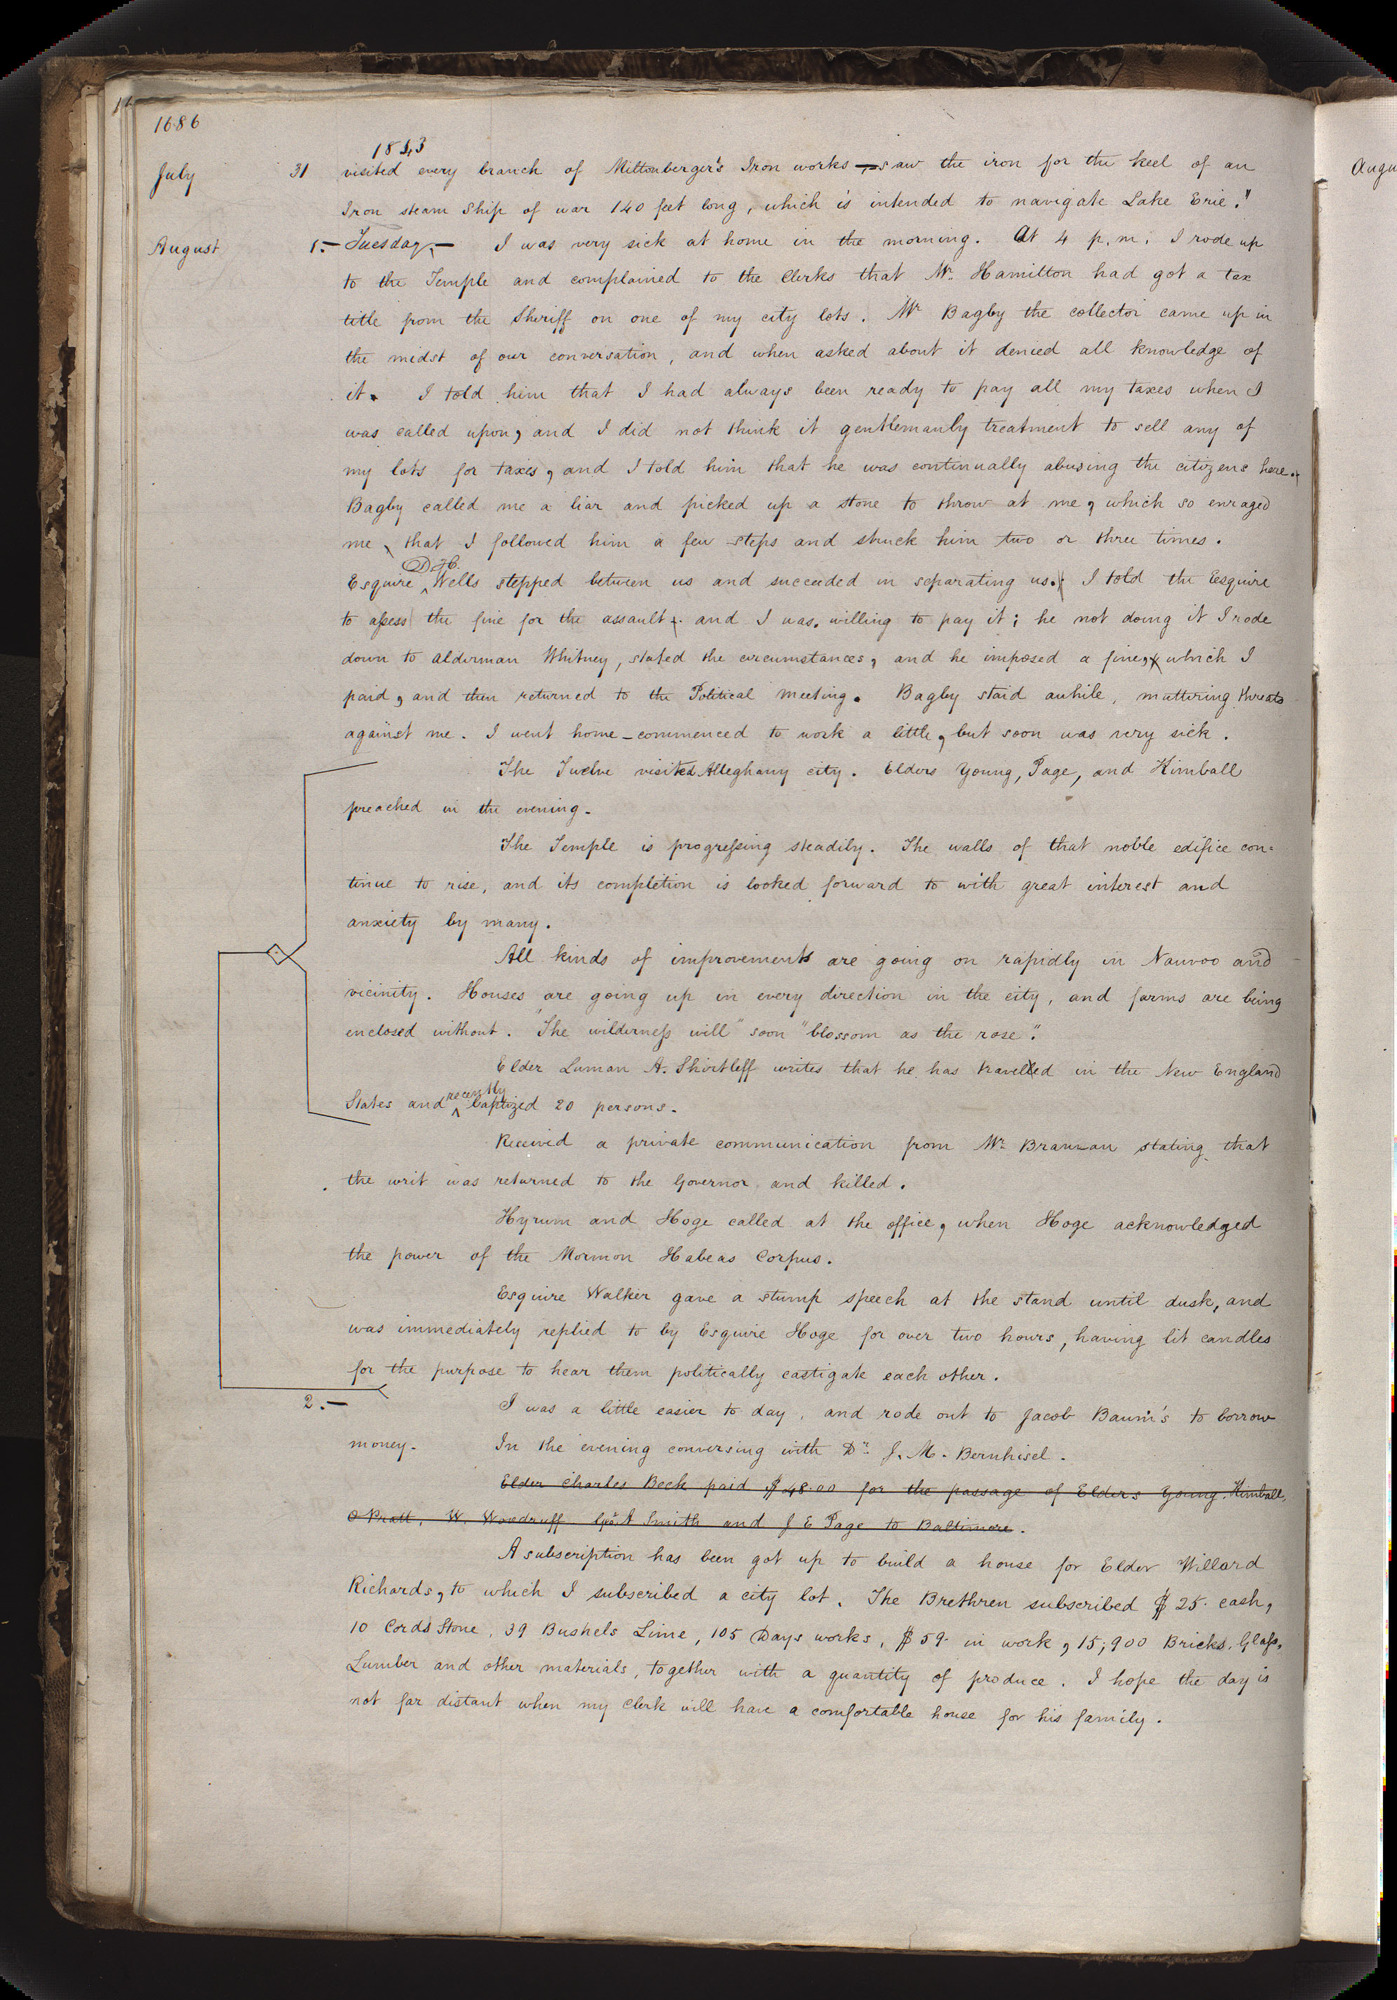 1686
1843
July 31 visited every branch of Miltonberger's Iron works – saw the iron for the keel of an
Iron steam Ship of war 140 feet long, which is intended to navigate Lake Erie."
August 1.– Tuesday,– I was very sick at home in the morning. At 4 p.m. I rode up
to the Temple and complained to the Clerks that Mr. Hamilton had got a tax
title from the Sheriff on one of my city lots. Mr Bagby the collector came up in
the midst of our conversation, and when asked about it denied all knowledge of
it. I told him that I had always been ready to pay all my taxes when I
was called upon, and I did not think it gentlemanly treatment to sell any of
my lots for taxes, and I told him that he was continually abusing the citizens here.
Bagby called me a liar and picked up a stone to throw at me, which so enraged
me, that I followed him a few steps and struck him two or three times.
Esquire D. H. Wells stepped between us and succeeded in separating us. I told the Esquire
to assess the fine for the assault, and I was willing to pay it; he not doing it I rode
down to Alderman Whitney, stated the circumstances, and he imposed a fine, which I
paid, and then returned to the Political Meeting. Bagby staid awhile, muttering threats
against me. I went home – commenced to work a little, but soon was very sick.
The Twelve visited Alleghany city. Elders Young, Page, and Kimball
preached in the evening.
The Temple is progressing steadily. The walls of that noble edifice con=
tinue to rise, and its completion is looked forward to with great interest and
anxiety by many.
All kinds of improvements are going on rapidly in Nauvoo and
vicinity. Houses are going up in every direction in the city, and farms are being
enclosed without. "The wilderness will" soon "blossom as the rose."
Elder Luman A. Shirtleff writes that he has travelled in the New England
States and recently baptized 20 persons.
Received a private communication from Mr. Brannan stating that
the writ was returned to the Governor and killed.
Hyrum and Hoge called at the office, when Hoge acknowledged
the power of the Mormon Habeas Corpus.
Esquire Walker gave a stump speech at the stand until dusk, and
was immediately replied to by Esquire Hoge for over two hours, having lit candles
for the purpose to hear them politically castigate each other.
2.– I was a little easier to day, and rode out to Jacob Baum's to borrow
money. In the evening conversing with Dr. J. M. Bernhisel.
Elder Charles Beck paid $48.00 for the passage of Elders Young, Kimball,
O Pratt, W. Woodruff Geo. A Smith and J E Page to Baltimore.
A subscription has been got up to build a house for Elder Willard
Richards, to which I subscribed a city lot. The Brethren subscribed $25. cash,
10 Cords Stone, 39 Bushels Lime, 105 Days works, $59. in work, 15,900 Bricks, Glass,
Lumber and other materials, together with a quantity of produce. I hope the day is
not far distant when my clerk will have a comfortable house for his family.
Augu